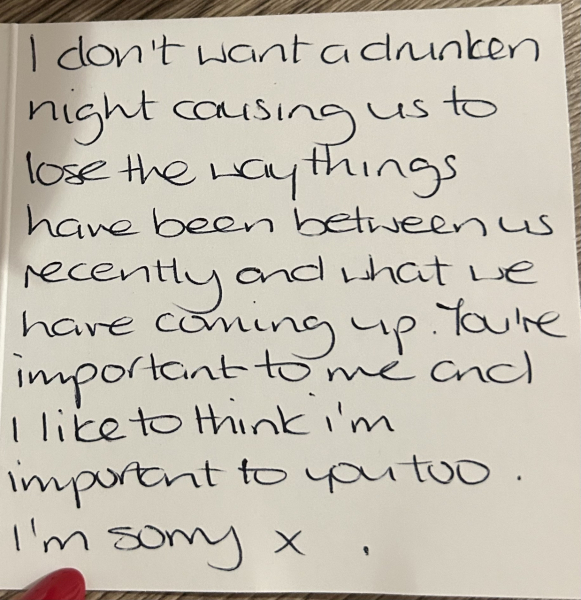 I don't want a drunken
night causing us to
lose the way things
have been between us
recently and what we
have coming up. You're
important to me and
I like to think i'm
important to you too.
I'm sorry x .